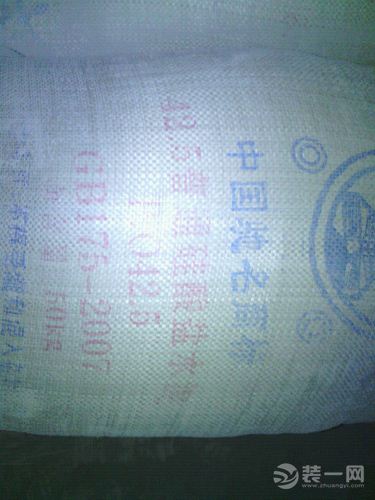 中国驰名商标
42.5普通硅酸盐水泥
P.O42.5
GB175-2007
净含量 50kg
装一网
www.zhuangyi.com